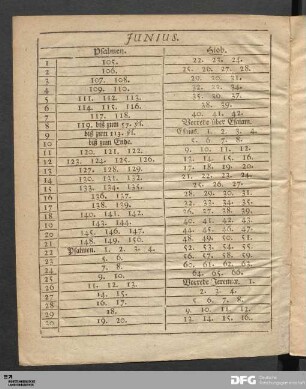 JUNIUS.
Psalmen. Hiob.
1 105. 22. 23. 24.
2 106. 25. 26. 27. 28.
3 107. 108. 29. 30. 31.
4 109. 110. 32. 33. 34.
5 111. 112. 113. 35. 36. 37.
6 114. 115. 116. 38. 39.
7 117. 118. 40. 41. 42.
8 119. biß zum Vorrede über Esaiam.
9 biß zum 113. Esaias. 1. 2. 3. 4.
10 biß zum Ende. 5. 6. 7. 8.
11 120. 121. 122. 9. 10. 11. 12.
12 123. 124. 125. 126. 13. 14. 15. 16.
13 127. 128. 129. 17. 18. 19. 20.
14 130. 131. 132. 21. 22. 23. 24.
15 133. 134. 135. 25. 26. 27.
16 136. 137. 28. 29. 30. 31.
17 138. 139. 32. 33. 34. 35.
18 140. 141. 142. 36. 37. 38. 39.
19 143. 144. 40. 41. 42. 43.
20 145. 146. 147. 44. 45. 46. 47.
21 148. 149. 150. 48. 49. 50. 51.
22 Psalmen. 1. 2. 3. 4. 52. 53. 54. 55.
23 5. 6. 56. 57. 58. 59.
24 7. 8. 60. 61. 62. 63.
25 9. 10. 64. 65. 66.
26 11. 12. 13. Vorrede Jeremiæ. 1.
27 14. 15. 2. 3. 4.
28 16. 17. 5. 6. 7. 8.
29 18. 9. 10. 11. 12.
30 19. 20. 13. 14. 15. 16.
DFG